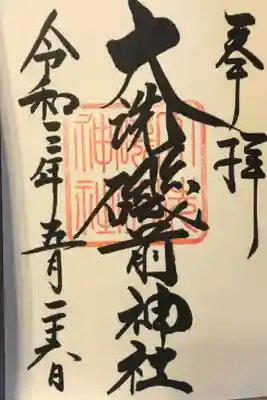 奉拝
大洗磯前神社
令和三年五月二十六日